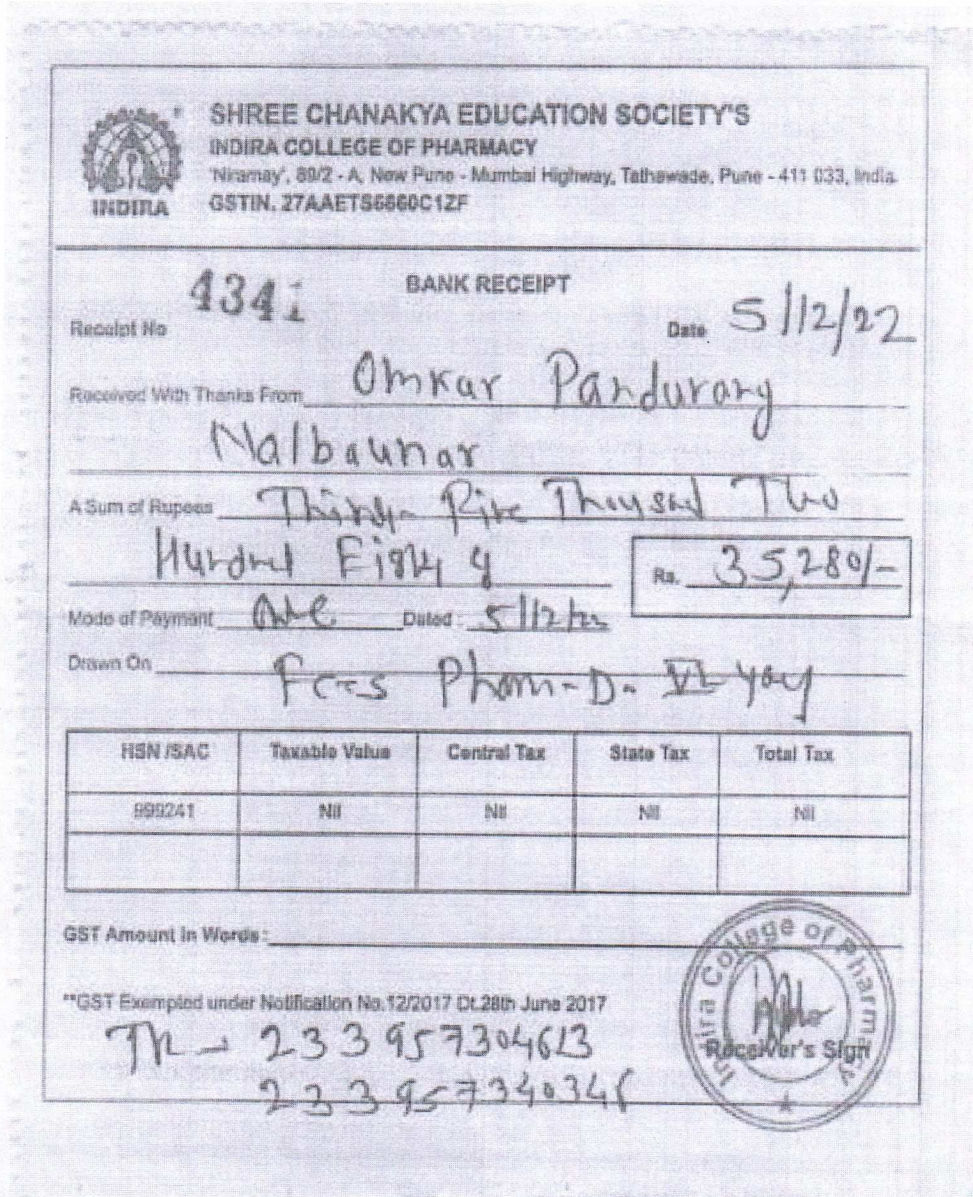 SHREE CHANAKYA EDUCATION SOCIETY'S
INDIRA COLLEGE OF PHARMACY
'Niramay', 89/2 - A, New Pune - Mumbai Highway, Tathawade, Pune - 411 033, India.
INDIRA GSTIN. 27AAETS6660C1ZF
BANK RECEIPT
Receipt No 4341 Date 5/12/22
Received With Thanks From Omkar Pandurang
Nalbaunar
A Sum of Rupees Thirty Five Thousand Two
Hundred Eighty Rs. 35,280/-
Mode of Payment Dated : 5/12/22
Drawn On Fees Pharm-D. VI year
HSN /SAC Taxable Value Central Tax State Tax Total Tax
999241 Nil Nil Nil Nil
GST Amount In Words :
**GST Exempted under Notification No.12/2017 Dt.28th June 2017
TR - 233957304613
233957340346
Indira College of Pharmacy
Receiver's Sign